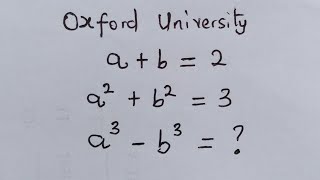 Oxford University
a + b = 2
a² + b² = 3
a³ - b³ = ?